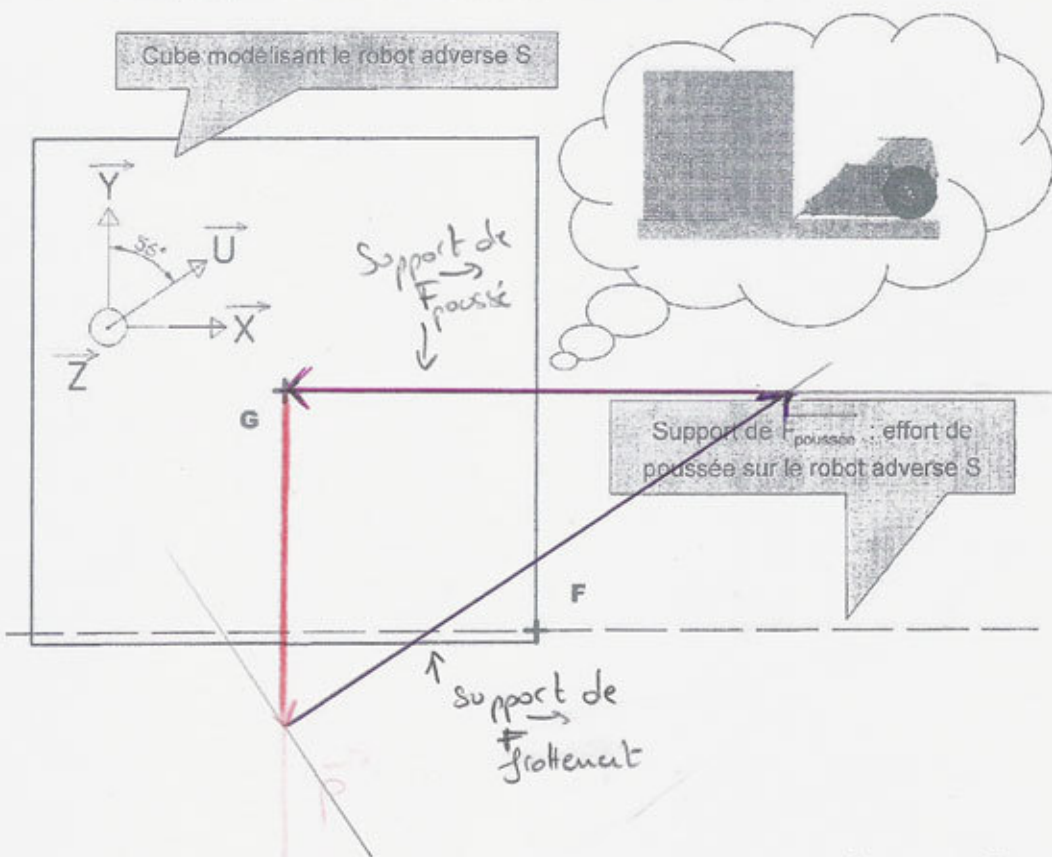 Cube modélisant le robot adverse S
Y
55°
U
X
Z
Support de
F poussé
G
Support de F poussée : effort de
poussée sur le robot adverse S
F
support de
F
frottement
P